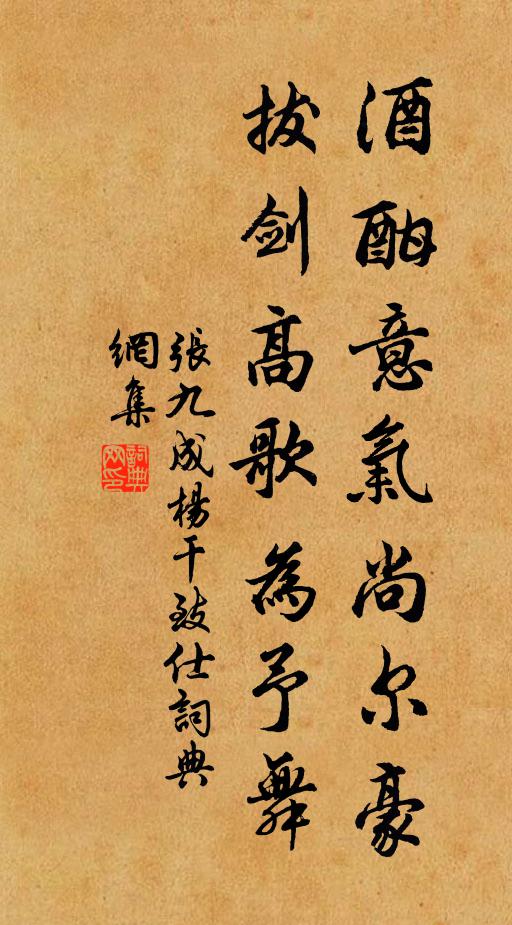 酒酣意氣尚尔豪
拔劍高歌為予舞
張九成楊干致仕詞典
網集
詞典
网印